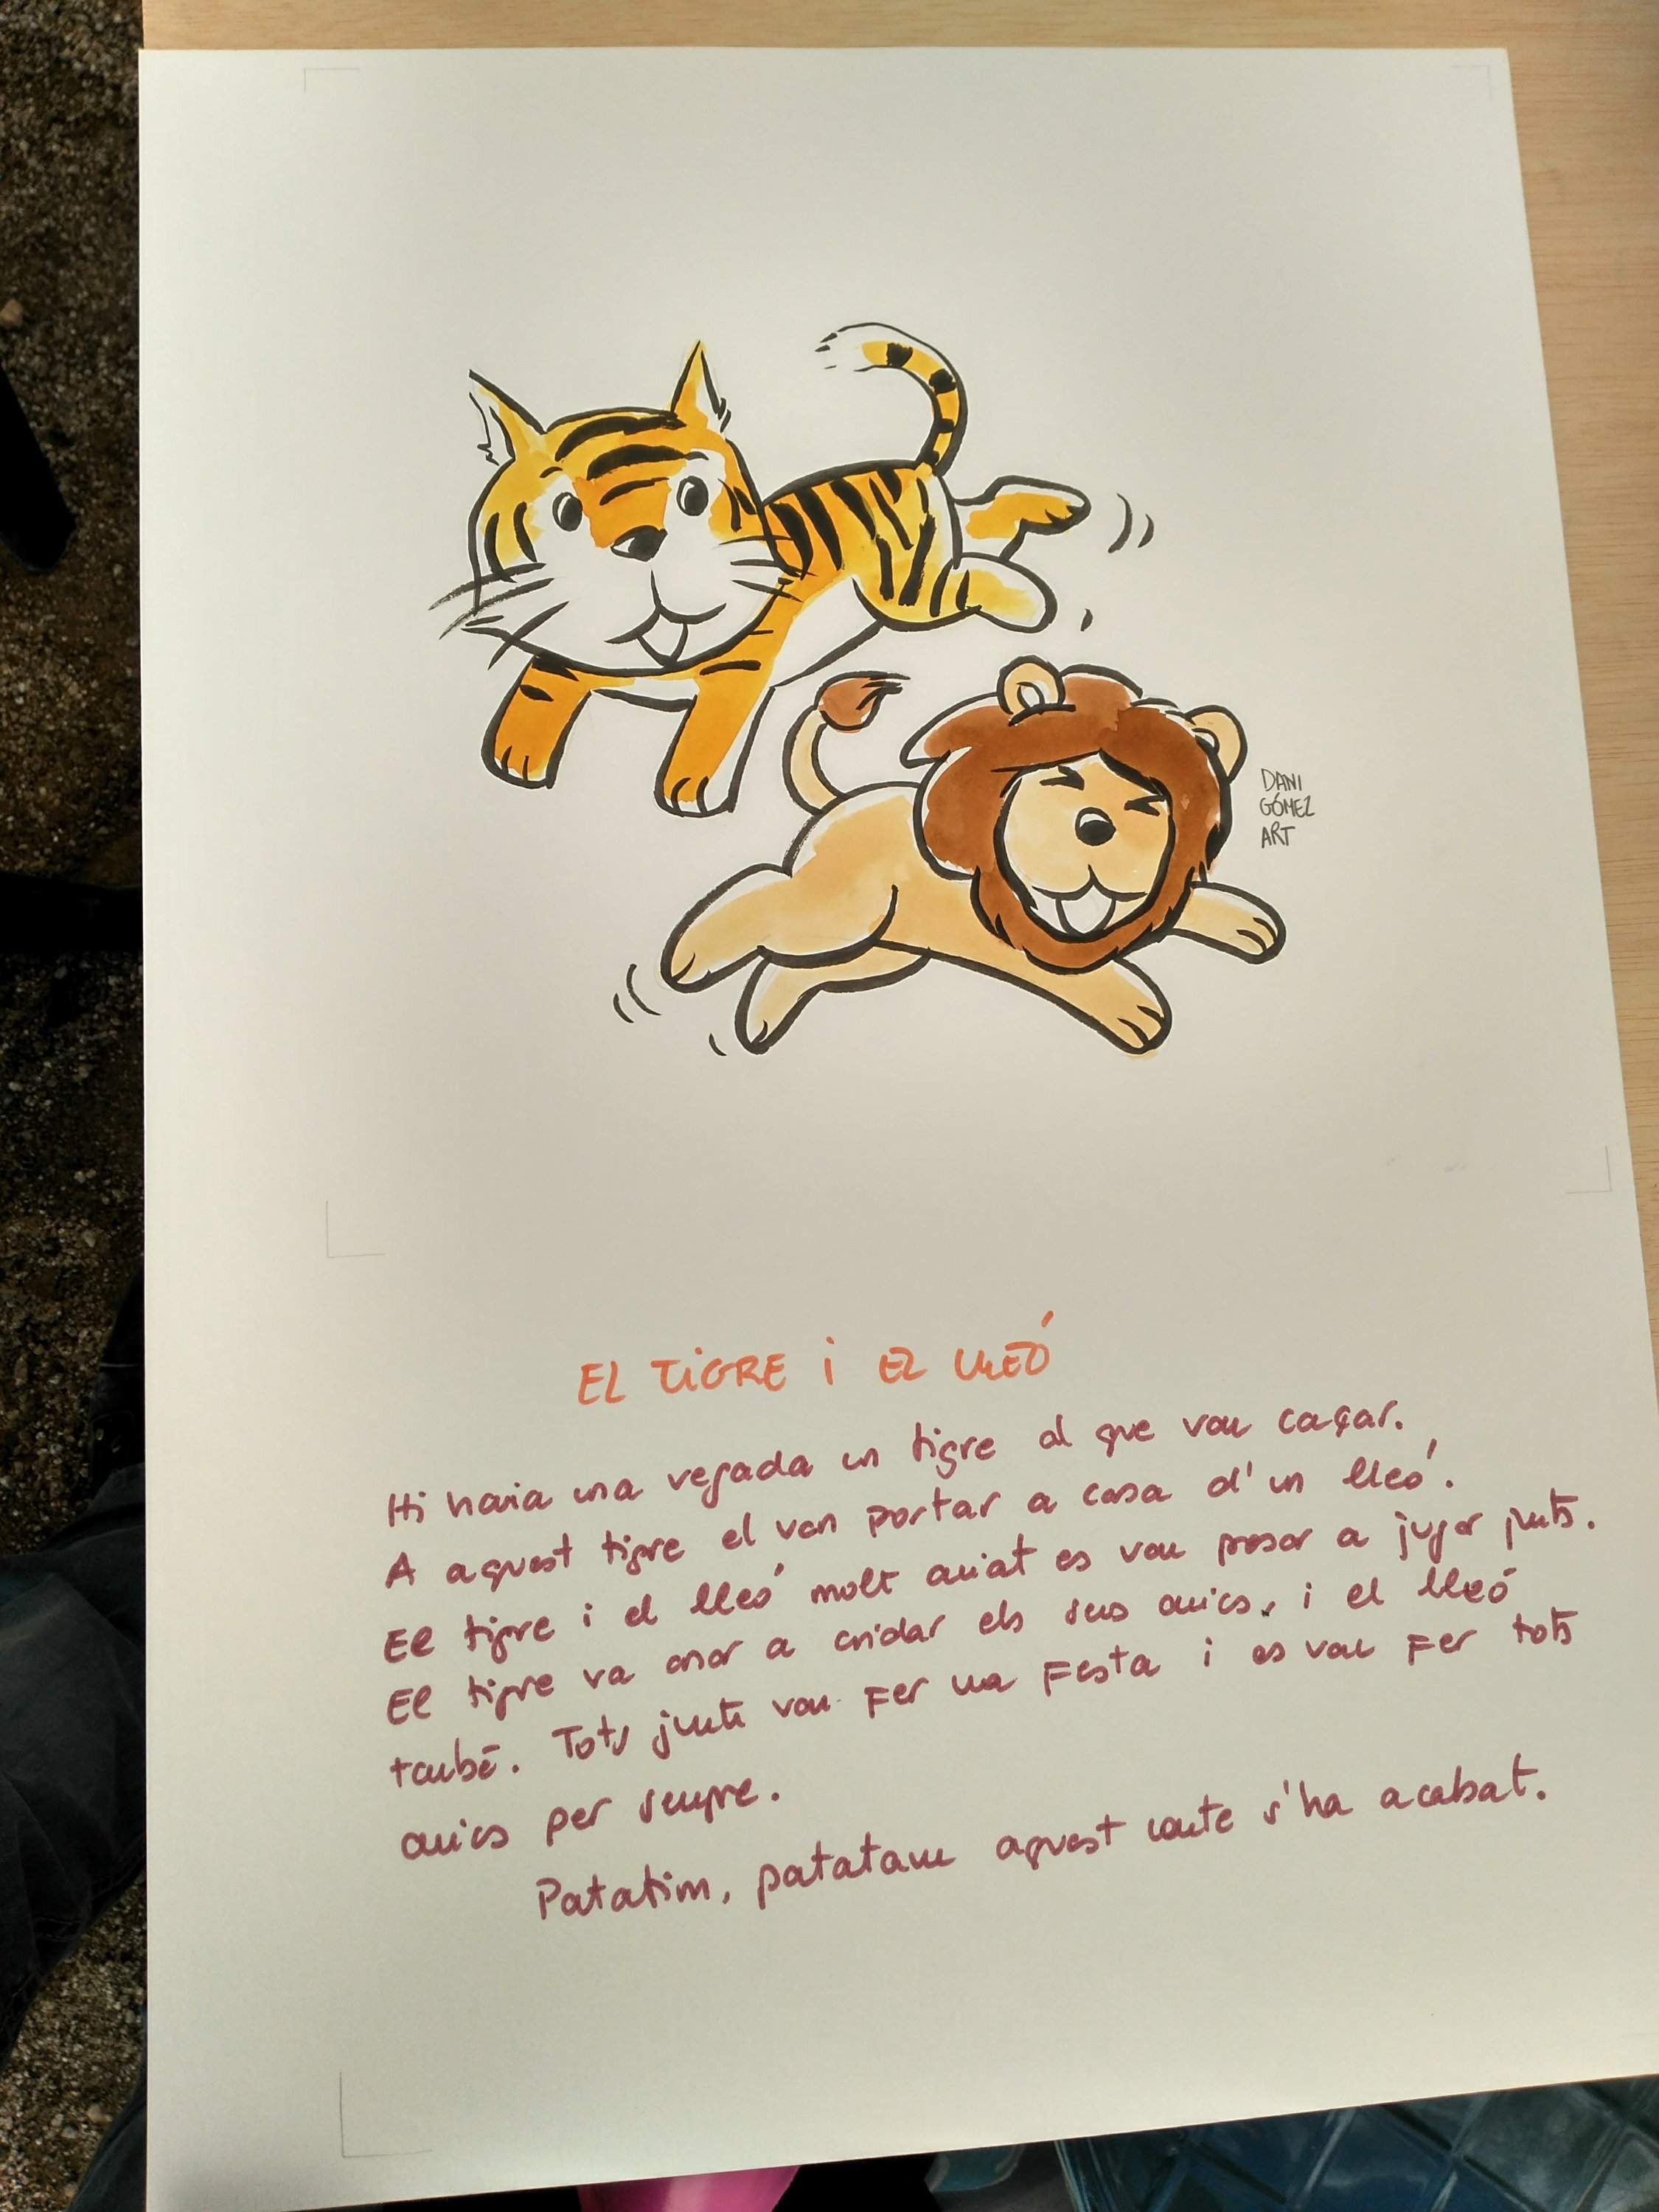 DANI
GÓMEZ
ART
EL TIGRE i EL LLEÓ
Hi havia una vegada un tigre al que van caçar.
A aquest tigre el van portar a casa d'un lleó.
El tigre i el lleó molt aviat es van posar a jugar junts.
El tigre va anar a cridar els seus amics, i el lleó
també. Tots junts van fer una festa i es van fer tots
amics per sempre.
Patatim, patatam aquest conte s'ha acabat.